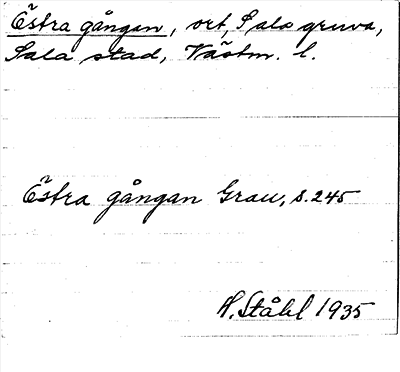 Östra gången, ort, Sala gruva,
Sala stad, Västm. l.
Östra gången Grau, s. 245
H. Ståhl 1935